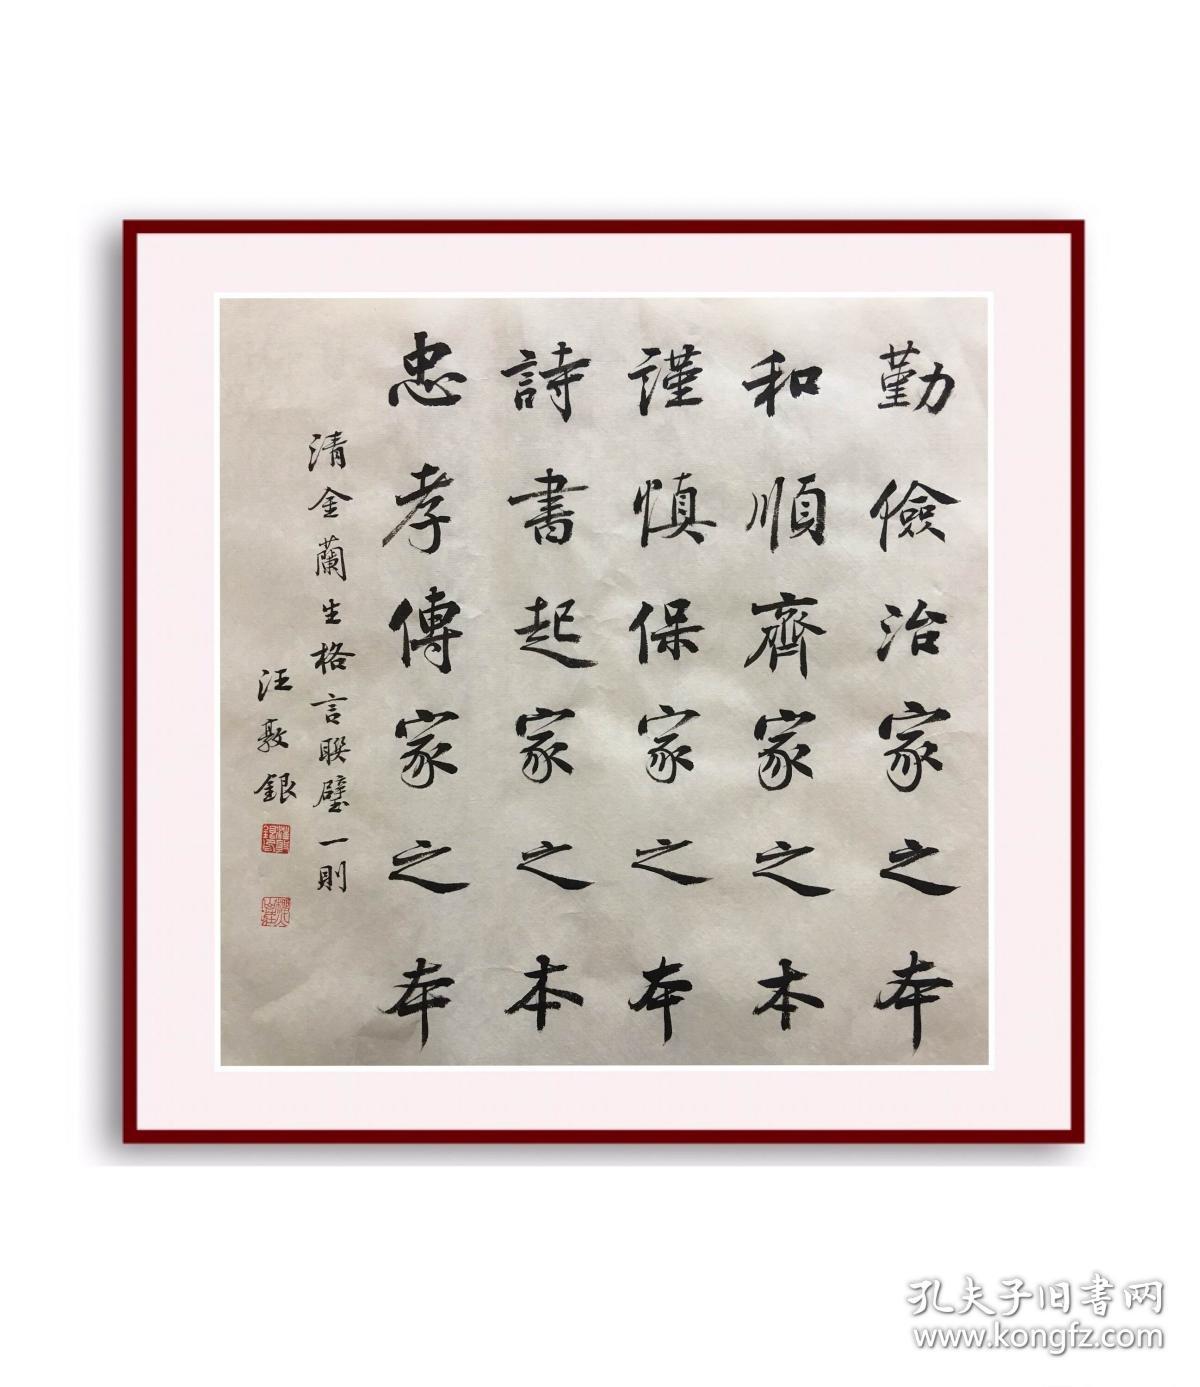 勤儉治家之本
和順齊家之本
謹慎保家之本
詩書起家之本
忠孝傳家之本
清金蘭生格言聯璧一則
汪敦銀
孔夫子旧書网
www.kongfz.com